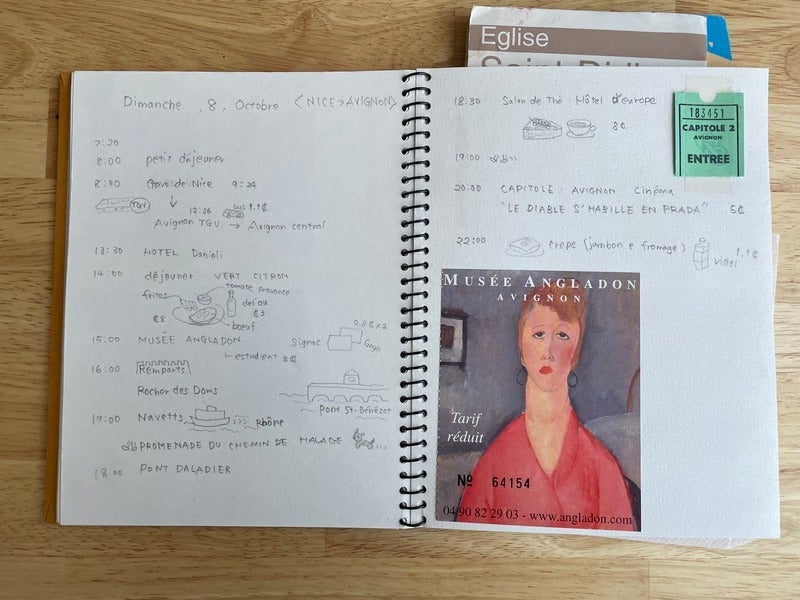 Eglise
Dimanche , 8, Octobre <NICE→AVIGNON>
7:20
8:00 petit déjeuner
8:00 Gare de Nice 9:24
TGV
12:36 bus 1.1€
Avignon TGV → Avignon central
13:30 HOTEL Danieli
14:00 déjeuner VERT CITRON
frites tomate provence
del'ou
€3
€8 boeuf
0.8€×2
15:00 MUSÉE ANGLADON Signac Gogh
estudient 3€
16:00 Remparts
Rocher des Doms
PONT St-Bénézet
17:00 Navetts Rhône
PROMENADE DU CHEMIN DE HALAGE
18:00 PONT DALADIER
18:30 Salon de Thé Hôtel d'europe
8€
19:00
20:00 CAPITOLE AVIGNON Cinéma
"LE DIABLE S'HABILLE EN PRADA" 5€
22:00 crepe (jambon e fromage)
Vittel 1.1€
183451
CAPITOLE 2
AVIGNON
ENTREE
MUSÉE ANGLADON
AVIGNON
Tarif
réduit
Nº 64154
04 90 82 29 03 - www.angladon.com